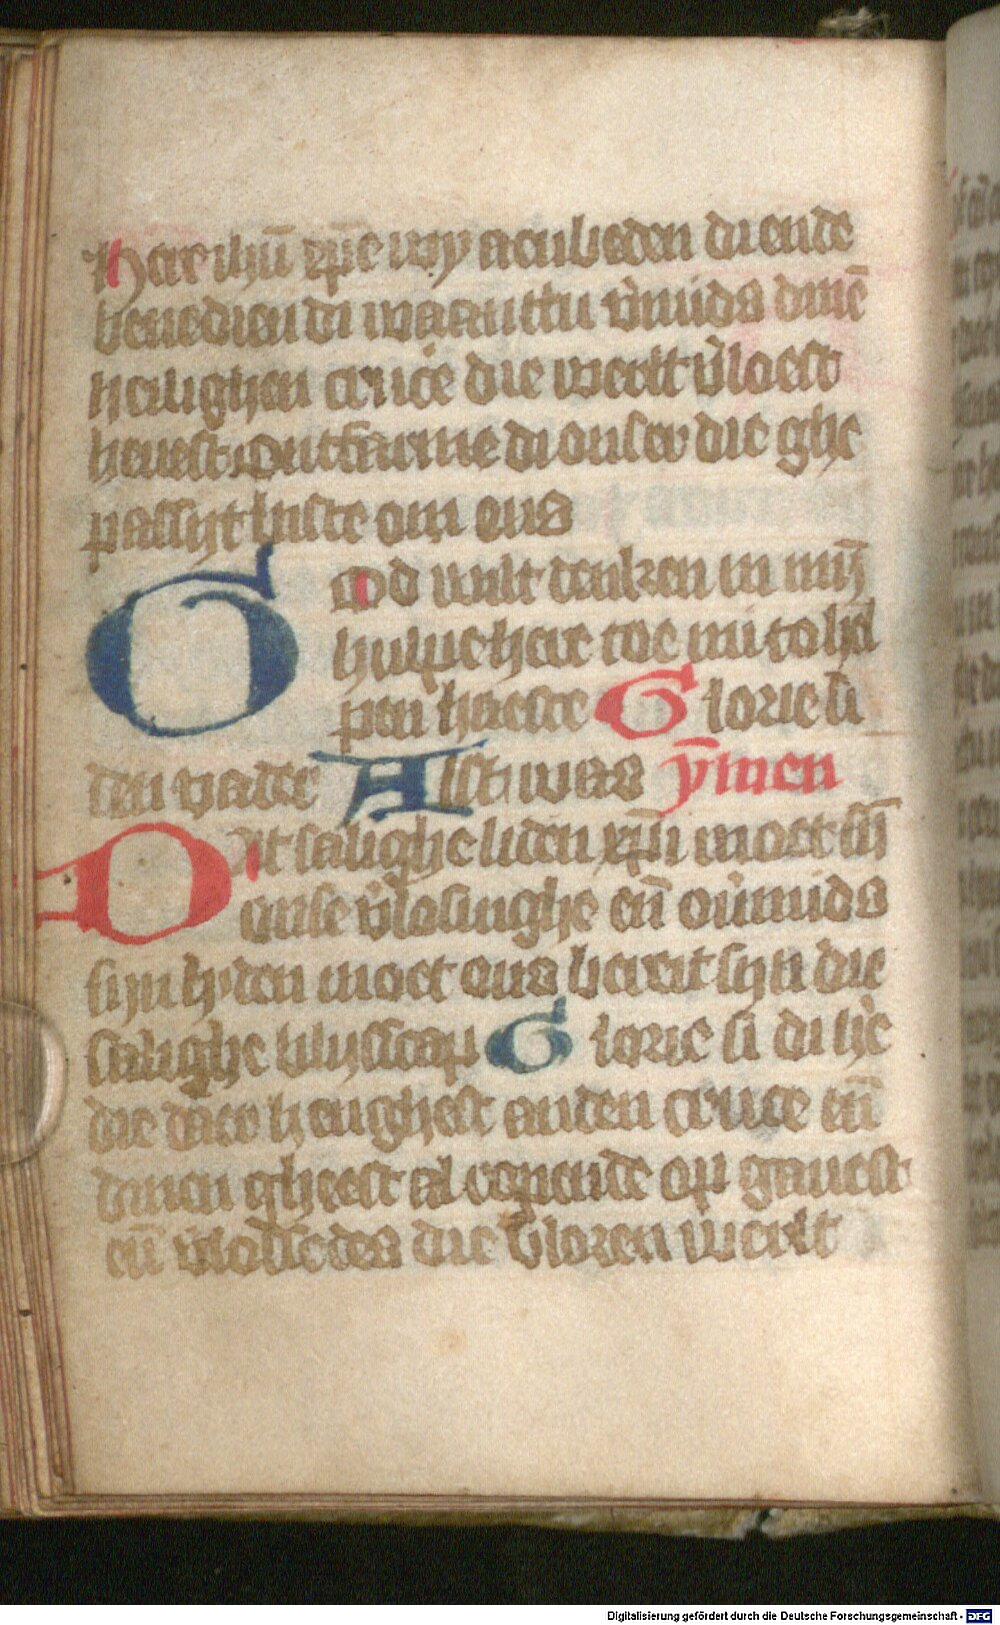 Here ihū xp̄e wy aenbeden di ende
benedien di waāt tu v̓mids dinē
heilighen cruce die werlt v̓loest
heuest Ontfarme di onser die ghe
passyt biste om ons
God wilt denken in mȳ
hulpe here toe mi to hel
pen haeste Glorie si
den vader Alst was ȳmen
Dit salighe liden xp̄i moet sī
onse v̓losinghe eñ ou̓mids
sijn lyden moet ons bereit syn die
salighe blyscap Glorie si di he̓
die daer henghest anden cruce eñ
dinen gheest al ropende op gauest
eñ v̓lossedes die v̓loren werlt
Digitalisierung gefördert durch die Deutsche Forschungsgemeinschaft - DFG